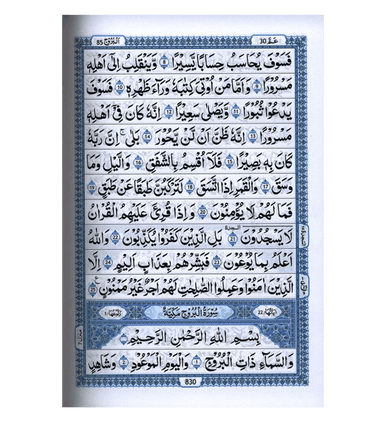 عَمَّ 30
اَلْبُرُوْج 85
فَسَوْفَ يُحَاسَبُ حِسَابًا يَّسِيْرًا ۝٨ وَّ يَنْقَلِبُ اِلٰٓى اَهْلِهٖ
مَسْرُوْرًا ۝٩ وَ اَمَّا مَنْ اُوْتِيَ كِتٰبَهٗ وَرَآءَ ظَهْرِهٖ ۝١٠ فَسَوْفَ
يَدْعُوْا ثُبُوْرًا ۝١١ وَّ يَصْلٰى سَعِيْرًا ۝١٢ اِنَّهٗ كَانَ فِيْٓ اَهْلِهٖ
مَسْرُوْرًا ۝١٣ اِنَّهٗ ظَنَّ اَنْ لَّنْ يَّحُوْرَ ۝١٤ بَلٰٓى اِنَّ رَبَّهٗ
كَانَ بِهٖ بَصِيْرًا ۝١٥ فَلَآ اُقْسِمُ بِالشَّفَقِ ۝١٦ وَ الَّيْلِ وَ مَا
وَسَقَ ۝١٧ وَ الْقَمَرِ اِذَا اتَّسَقَ ۝١٨ لَتَرْكَبُنَّ طَبَقًا عَنْ طَبَقٍ ۝١٩
فَمَا لَهُمْ لَا يُؤْمِنُوْنَ ۝٢٠ وَ اِذَا قُرِئَ عَلَيْهِمُ الْقُرْاٰنُ
لَا يَسْجُدُوْنَ ۝٢١ بَلِ الَّذِيْنَ كَفَرُوْا يُكَذِّبُوْنَ ۝٢٢ وَ اللّٰهُ
اَعْلَمُ بِمَا يُوْعُوْنَ ۝٢٣ فَبَشِّرْهُمْ بِعَذَابٍ اَلِيْمٍ ۝٢٤ اِلَّا
الَّذِيْنَ اٰمَنُوْا وَ عَمِلُوا الصّٰلِحٰتِ لَهُمْ اَجْرٌ غَيْرُ مَمْنُوْنٍ ۝٢٥
اٰيَاتُهَا 22 سُوْرَةُ الْبُرُوْجِ مَكِّيَّةٌ رُكُوْعُهَا 1
بِسْمِ اللّٰهِ الرَّحْمٰنِ الرَّحِيْمِ
وَ السَّمَآءِ ذَاتِ الْبُرُوْجِ ۝١ وَ الْيَوْمِ الْمَوْعُوْدِ ۝٢ وَ شَاهِدٍ
830